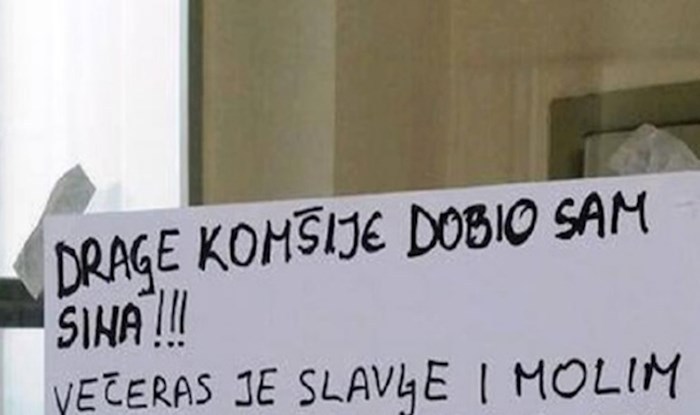 DRAGE KOMŠIJE DOBIO SAM
SINA!!!
VEČERAS JE SLAVJE I MOLIM